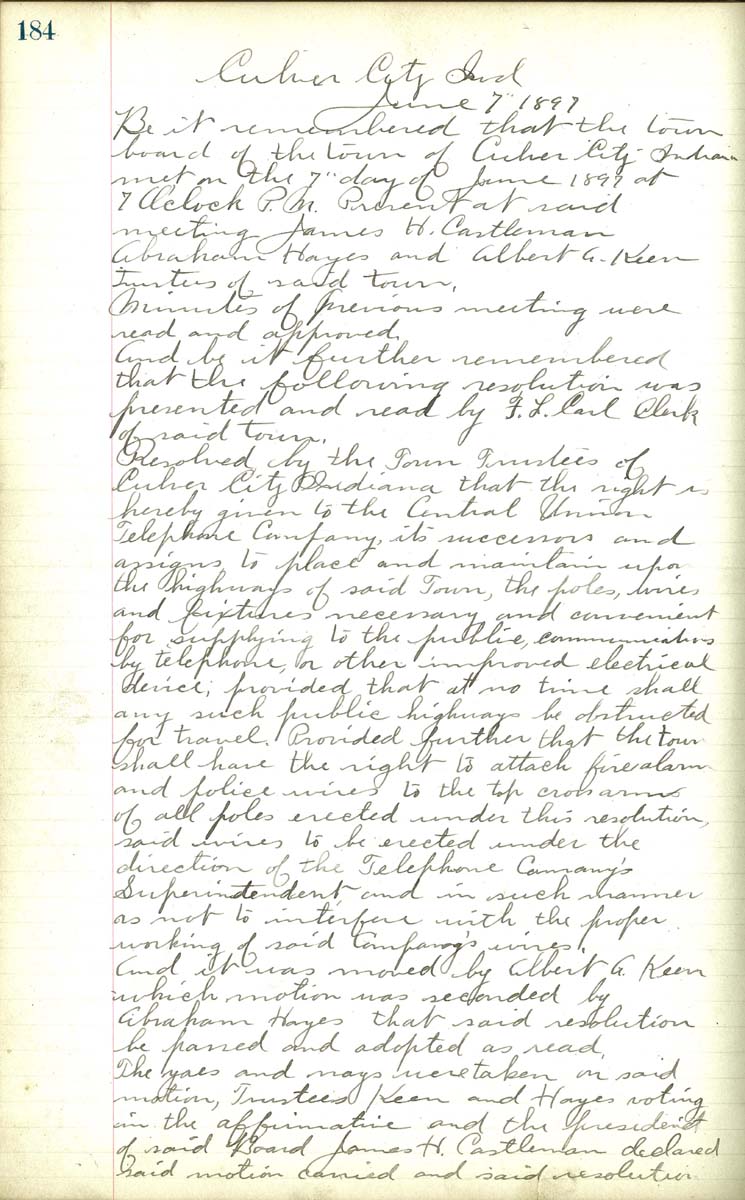 184
Culver City Ind
June 7" 1897
Be it remembered that the town
board of the town of Culver City Indiana
met on the 7" day of June 1897 at
7 Oclock P.M. Present at said
meeting James H. Castleman
Abraham Hayes and Albert A. Keen
Trustees of said town.
Minutes of previous meeting were
read and approved.
And be it further remembered
that the following resolution was
presented and read by F. L. Carl Clerk
of said town.
Resolved by the Town Trustees of
Culver City Indiana that the right is
hereby given to the Central Union
Telephone Company, its successors and
assigns, to place and maintain upon
the highways of said Town, the poles, wires
and fixtures necessary and convenient
for supplying to the public, communications
by telephone, or other improved electrical
device; provided that at no time shall
any such public highways be obstructed
for travel. Provided further that the town
shall have the right to attach fire alarm
and police wires to the top crossarms
of all poles erected under this resolution,
said wires to be erected under the
direction of the Telephone Comany's
Superintendent and in such manner
as not to interfere with the proper
working of said Company's wires.
And it was moved by Albert A. Keen
which motion was seconded by
Abraham Hayes that said resolution
be passed and adopted as read.
The yaes and nays were taken on said
motion, Trustees Keen and Hayes voting
in the affirmative and the president
of said Board James H. Castleman declared
said motion carried and said resolution